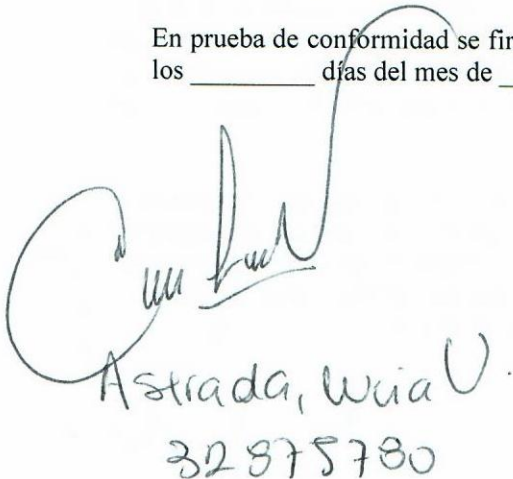 En prueba de conformidad se fir
los __________ días del mes de _
Astrada, Lucia V.
32875780